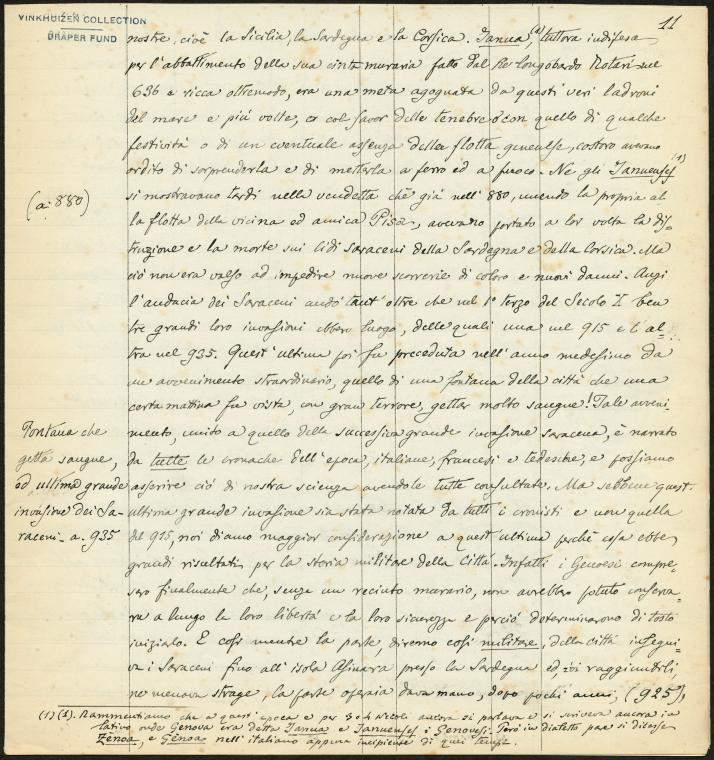 VINKHUIZEN COLLECTION
DRAPER FUND
11
nostre, cioè la Sicilia, la Sardegna e la Corsica. Ianua,(1) tuttora indifesa
per l'abbattimento della sua cinta muraria fatto dal Re longobardo Rotari nel
636 e ricca oltremodo, era una meta agognata da questi veri ladroni
del mare e più volte, o col favor delle tenebre o con quello di qualche
festività o di un eventuale assenza della flotta genovese, costoro avevano
ardito di sorprenderla e di metterla a ferro ed a fuoco. Nè gli Ianuenses(1)
(a. 880)
si mostravano tardi nella vendetta chè già nell'880, unendo la propria al
la flotta della vicina ed amica Pisa, avevano portato a lor volta la dis=
truzione e la morte sui lidi saraceni della Sardegna e della Corsica. Ma
ciò non era valso ad impedire nuove scorrerie di coloro e nuovi danni. Anzi
l'audacia dei Saraceni andò tant'oltre che nel 1° terzo del Secolo X ben
tre grandi loro invasioni ebbero luogo, delle quali una nel 915 e l'al=
tra nel 935. Quest'ultima poi fu preceduta nell'anno medesimo da
un avvenimento straordinario, quello di una fontana della città che una
certa mattina fu vista, con gran terrore, gettar molto sangue! Tale avveni=
Fontana che
getta sangue,
ed ultima grande
invasione dei Sa=
raceni. a. 935
mento, unito a quello della successiva grande invasione saracena, è narrato
da tutte le cronache dell'epoca, italiane, francesi e tedesche, e possiamo
asserire ciò di nostra scienza avendole tutte consultate. Ma sebbene quest'
ultima grande invasione sia stata notata da tutti i cronisti e non quella
del 915, noi diamo maggior considerazione a quest'ultima perchè essa ebbe
grandi risultati per la storia militare della Città. Infatti i Genovesi compre=
sero finalmente che, senza un recinto murario, non avrebbero potuto conserva=
re a lungo la loro libertà e la loro sicurezza e perciò determinarono di tosto
iniziarlo. E così mentre la parte, diremo così militare, della città insegui=
va i Saraceni fino all'isola Asinara presso la Sardegna ed, ivi raggiuntili,
ne menava strage, la parte operaia dava mano, dopo pochi anni, (925),
(1) (1). Rammentiamo che a quest'epoca e per 3 o 4 secoli ancora si parlava e si scriveva ancora in
latino onde Genova era detta Ianua e Ianuenses i Genovesi. Però in dialetto pare si dicesse
Zenoa, e Genoa nell'italiano appena incipiente di quei tempi.